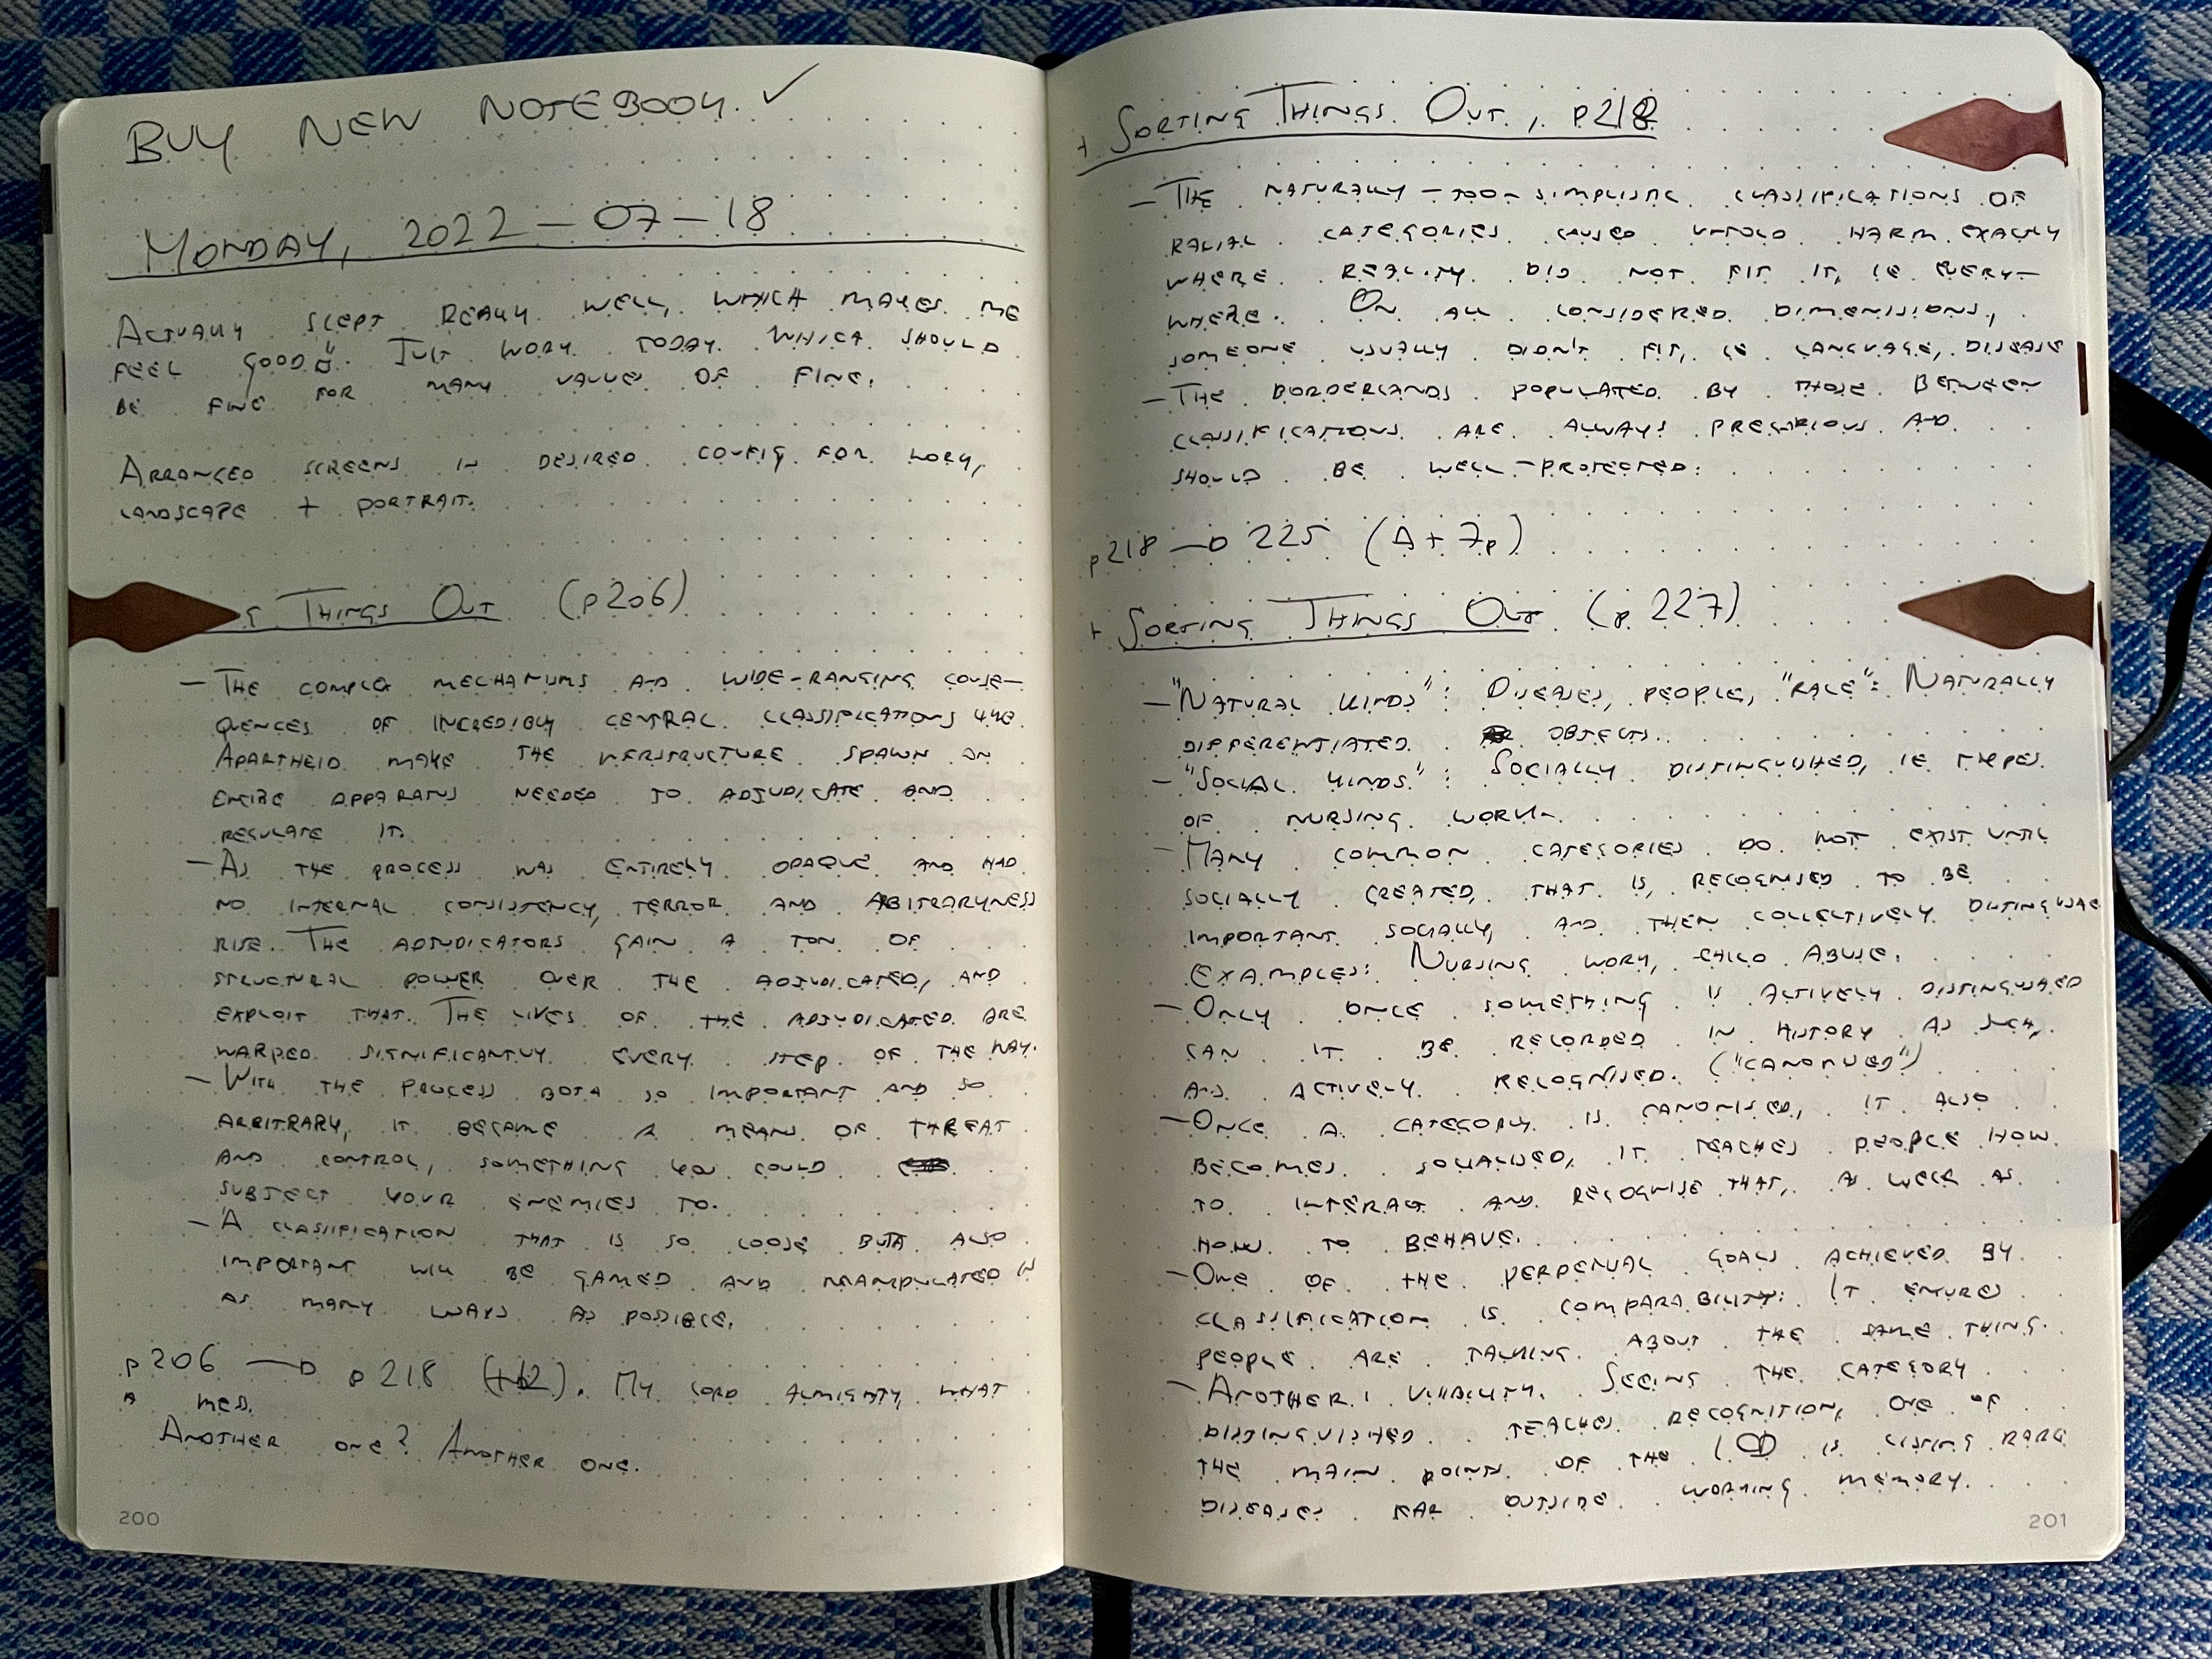 BUY NEW NOTEBOOK. ✓
MONDAY, 2022-07-18
ACTUALLY SLEPT REALLY WELL, WHICH MAKES ME
FEEL GOOD. JUST WORK TODAY WHICH SHOULD
BE FINE FOR MANY VALUES OF FINE.
ARRANGED SCREENS IN DESIRED CONFIG FOR WORK,
LANDSCAPE + PORTRAIT.
G THINGS OUT (p206)
- THE COMPLEX MECHANISMS AND WIDE-RANGING CONSE-
QUENCES OF INCREDIBLY CENTRAL CLASSIFICATIONS LIKE
APARTHEID MAKE THE INFRSTRUCTURE SPAWN AN
ENTIRE APPARATUS NEEDED TO ADJUDICATE AND
REGULATE IT.
- AS THE PROCESS WAS ENTIRELY OPAQUE AND HAD
NO INTERNAL CONSISTENCY, TERROR AND ARBITRARYNESS
RISE. THE ADJUDICATORS GAIN A TON OF
STRUCTURAL POWER OVER THE ADJUDICATED, AND
EXPLOIT THAT. THE LIVES OF THE ADJUDICATED ARE
WARPED SIGNIFICANTLY EVERY STEP OF THE WAY.
- WITH THE PROCESS BOTH SO IMPORTANT AND SO
ARBITRARY, IT BECAME A MEANS OF THREAT
AND CONTROL, SOMETHING YOU COULD
SUBJECT YOUR ENEMIES TO.
- A CLASSIFICATION THAT IS SO LOOSE BUT ALSO
IMPORTANT WILL BE GAMED AND MANIPULATED IN
AS MANY WAYS AS POSSIBLE.
p206 → p218 (+12). MY LORD ALMIGHTY, WHAT
A MESS.
ANOTHER ONE? ANOTHER ONE.
200
+ SORTING THINGS OUT, p218
- THE NATURALLY-TOO-SIMPLISTIC CLASSIFICATIONS OF
RACIAL CATEGORIES CAUSED UNTOLD HARM EXACTLY
WHERE REALITY DID NOT FIT IT, IE EVERY-
WHERE. ON ALL CONSIDERED DIMENISIONS,
SOMEONE USUALLY DIDN'T FIT, IE LANGUAGE, DISEASE
- THE BORDERLANDS POPULATED BY THOSE BETWEEN
CLASSIFICATIONS ARE ALWAYS PRECARIOUS AND
SHOULD BE WELL-PROTECTED.
p218 → 225 (Δ+7p)
+ SORTING THINGS OUT (p 227)
- "NATURAL KINDS": DISEASES, PEOPLE, "RACE": NATURALLY
DIFFERENTIATED OBJECTS.
- "SOCIAL KINDS": SOCIALLY DISTINGUISHED, IE TYPES
OF NURSING WORK.
- MANY COMMON CATEGORIES DO NOT EXIST UNTIL
SOCIALLY CREATED, THAT IS, RECOGNISED TO BE
IMPORTANT SOCIALLY, AND THEN COLLECTIVELY
EXAMPLES: NURSING WORK, CHILD ABUSE.
- ONLY ONCE SOMETHING IS ACTIVELY DISTINGUISHED
CAN IT BE RECORDED IN HISTORY AS SUCH,
AND ACTIVELY RECOGNISED. ("CANONISED")
- ONCE A CATEGORY IS CANONISED, IT ALSO
BECOMES SOCIALISED, IT TEACHES PEOPLE HOW
TO INTERACT AND RECOGNISE THAT, AS WELL AS
HOW TO BEHAVE.
- ONE OF THE PERPETUAL GOALS ACHIEVED BY
CLASSIFICATION IS COMPARABILITY: IT ENSURES
PEOPLE ARE TALKING ABOUT THE SAME THING.
- ANOTHER: VISIBILITY. SEEING THE CATEGORY
DISTINGUISHED TEACHES RECOGNITION, ONE OF
THE MAIN POINTS OF THE ICD IS LISTING RARE
DISEASES FAR OUTSIDE WORKING MEMORY.
201